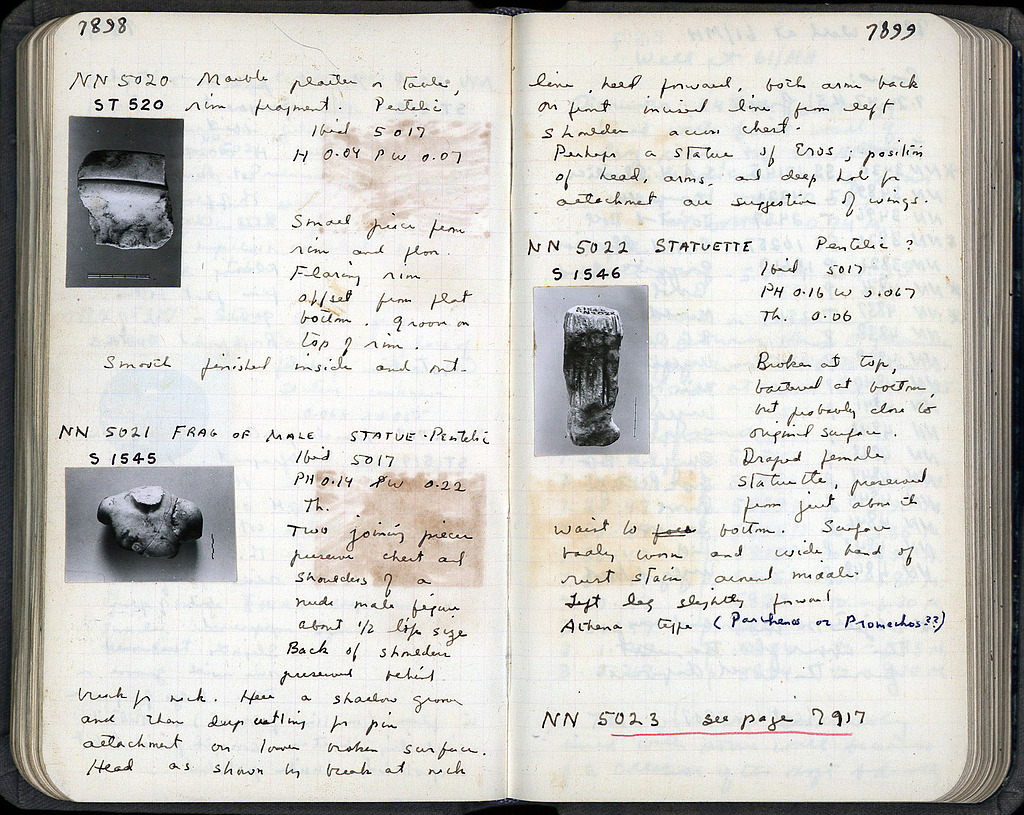 7898
NN 5020 Marble platter or table,
ST 520 rim fragment. Pentelic
Ibid 5017
H 0.04 PW 0.07
Small piece from
rim and floor.
Flaring rim
offset from flat
bottom. Groove on
top of rim.
Smooth finished inside and out.
NN 5021 FRAG OF MALE STATUE. Pentelic
S 1545
Ibid 5017
PH 0.14 PW 0.22
Th.
Two joining pieces
preserve chest and
shoulders of a
nude male figure
about 1/2 life size
Back of shoulders
preserved behind
break for neck. Here a shallow groove
and then deep cutting for pin
attachment on lower broken surface.
Head as shown by break at neck
7899
line, held forward, both arms back
On front incised line from left
shoulder across chest.
Perhaps a statue of Eros; position
of head, arms, and deep hole for
attachment are suggestive of wings.
NN 5022 STATUETTE Pentelic?
S 1546
Ibid 5017
PH 0.16 W 0.067
Th. 0.06
Broken at top,
battered at bottom,
but probably close to
original surface.
Draped female
statuette, preserved
from just above the
waist to bottom. Surface
badly worn and wide band of
rust stain around middle.
Left leg slightly forward
Athena type (Parthenos or Promachos??)
NN 5023 see page 7917